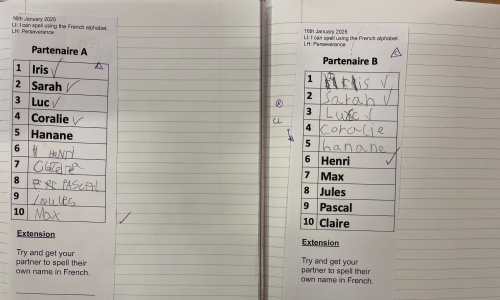 16th January 2025
LI: I can spell using the French alphabet.
LH: Perseverance
Partenaire A
1 Iris
2 Sarah
3 Luc
4 Coralie
5 Hanane
6 HENRI
7
8 PASCAL
9
10 Max
Extension
Try and get your
partner to spell their
own name in French.
16th January 2025
LI: I can spell using the French alphabet.
LH: Perseverance
Partenaire B
1
2 Sarah
3
4 coralie
5 hanane
6 Henri
7 Max
8 Jules
9 Pascal
10 Claire
Extension
Try and get your
partner to spell their
own name in French.